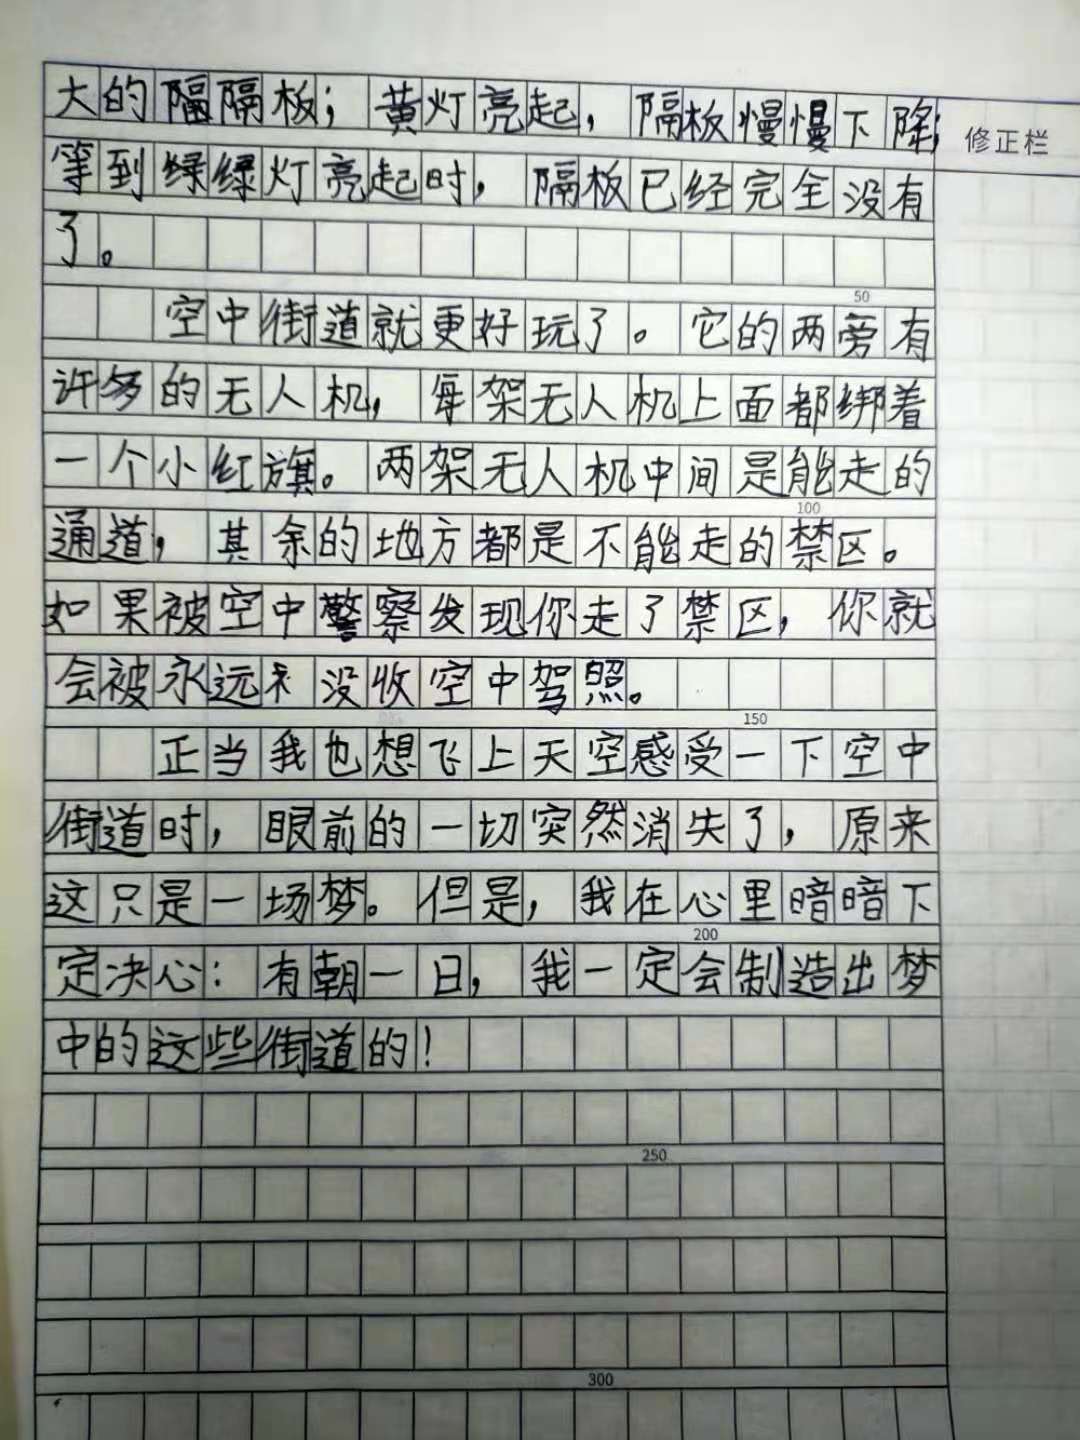 大的隔隔板；黄灯亮起，隔板慢慢下降；
修正栏
等到绿绿灯亮起时，隔板已经完全没有
了。
50
空中街道就更好玩了。它的两旁有
许多的无人机，每架无人机上面都绑着
一个小红旗。两架无人机中间是能走的
100
通道，其余的地方都是不能走的禁区。
如果被空中警察发现你走了禁区，你就
会被永远没收空中驾照。
150
正当我也想飞上天空感受一下空中
街道时，眼前的一切突然消失了，原来
这只是一场梦。但是，我在心里暗暗下
200
定决心：有朝一日，我一定会制造出梦
中的这些街道的！
250
300